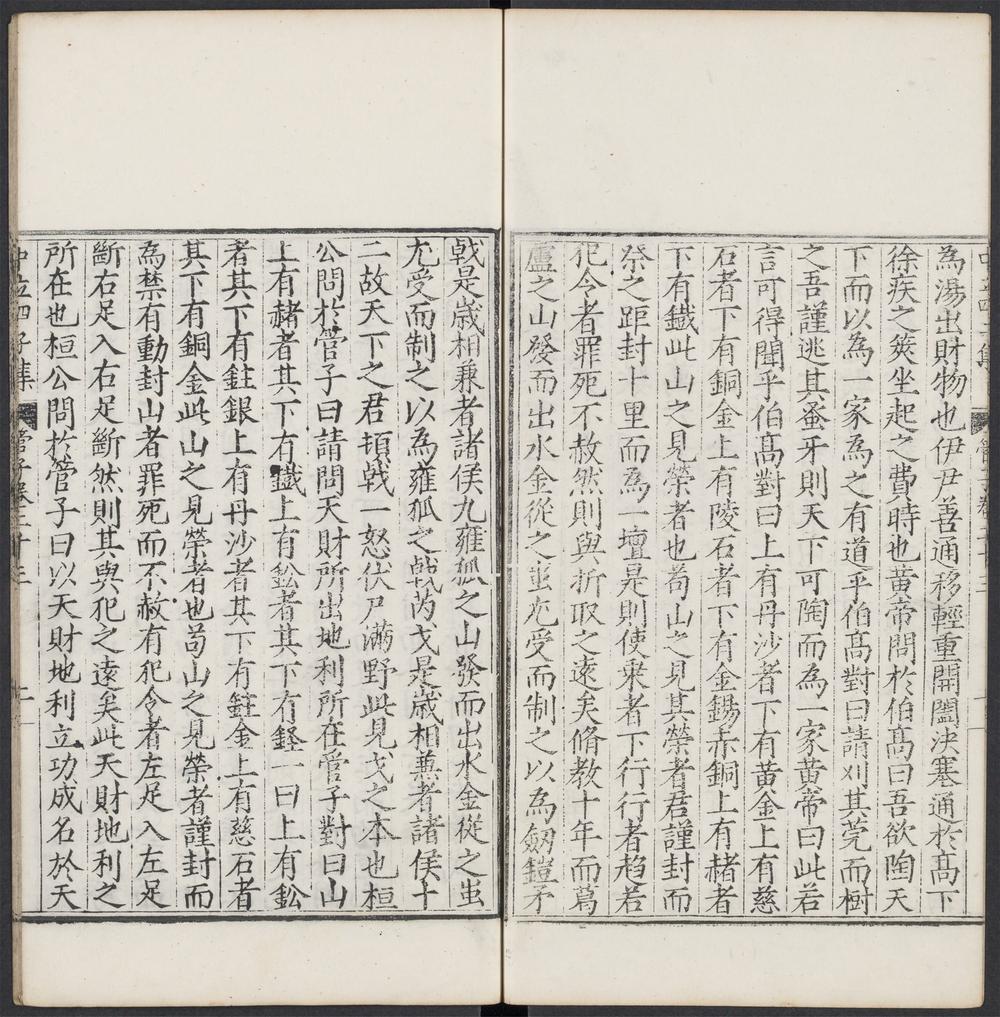 為湯出財物也伊尹善通移輕重開闔決塞通於髙下
徐疾之筴坐起之費時也黄帝問於伯髙曰吾欲陶天
下而以為一家為之有道乎伯髙對曰請刈其莞而樹
之吾謹逃其蚤牙則天下可陶而為一家黄帝曰此若
言可得聞乎伯髙對曰上有丹沙者下有黄金上有慈
石者下有銅金上有陵石者下有鉛錫赤銅上有赭者
下有鐵此山之見榮者也苟山之見其榮者君謹封而
祭之距封十里而為一壇是則使乗者下行行者趍若
犯令者罪死不赦然則與折取之遠矣脩教十年而葛
盧之山發而出水金從之蚩尤受而制之以為劔鎧矛
戟是歳相兼者諸侯九雍狐之山發而出水金從之蚩
尤受而制之以為雍狐之戟芮戈是歳相兼者諸侯十
二故天下之君頓戟一怒伏尸滿野此見戈之本也桓
公問於管子曰請問天財所出地利所在管子對曰山
上有赭者其下有鐵上有鈆者其下有銀一曰上有鈆
者其下有鉒銀上有丹沙者其下有鉒金上有慈石者
其下有銅金此山之見榮者也苟山之見榮者謹封而
為禁有動封山者罪死而不赦有犯令者左足入左足
斷右足入右足斷然則其與犯之遠矣此天財地利之
所在也桓公問於管子曰以天財地利立功成名於天
中立四子集 管子卷二十三